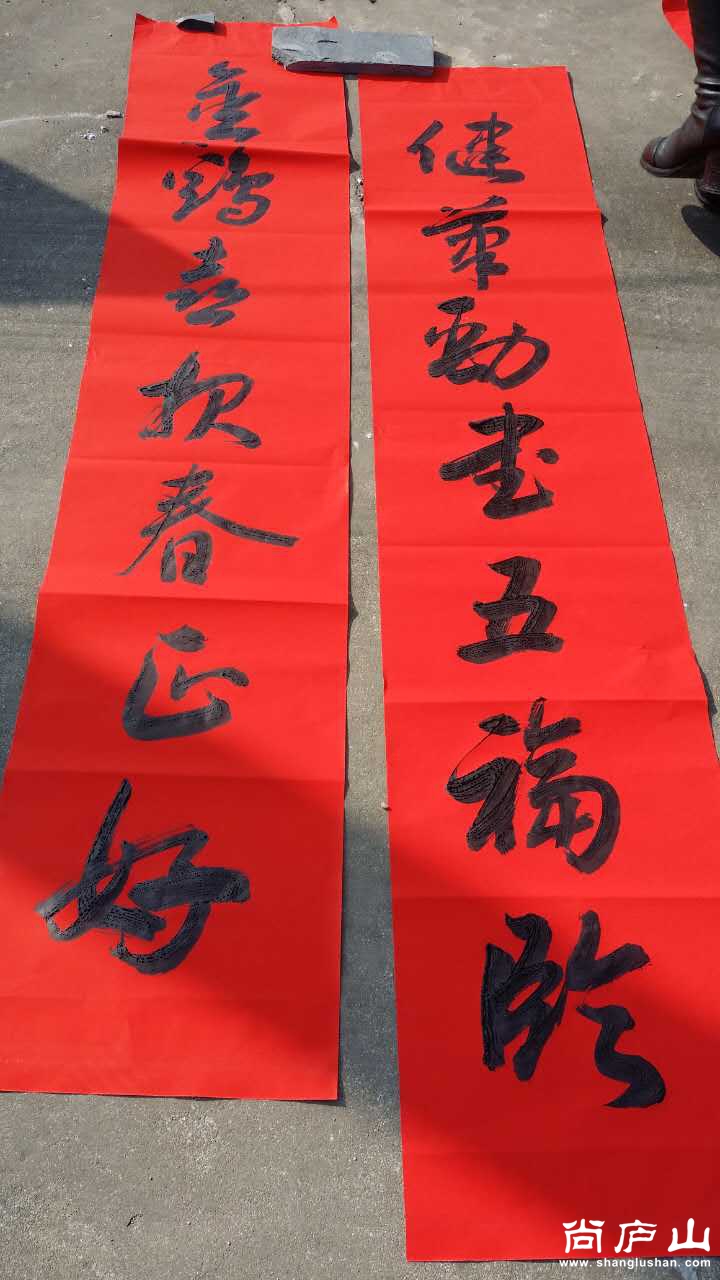 健筆劲書五福临
金鸡喜报春正好
尚庐山
www.shanglushan.com